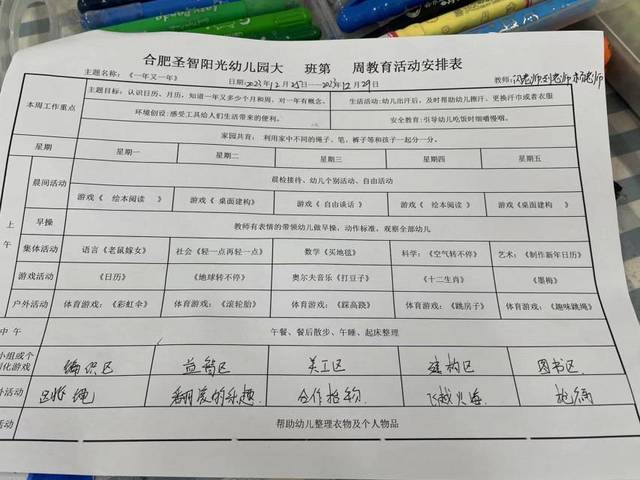 合肥圣智阳光幼儿园大 班第 周教育活动安排表
主题名称：《一年又一年》 日期：2023年12月25日—2023年12月29日 教师：闪老师 刘老师 杨老师
本周工作重点 主题目标：认识日历、月历，知道一年又多少个月和周，对一年有概念。 生活活动：幼儿出汗后，及时帮助幼儿擦汗、更换汗巾或者衣服
环境创设：感受工具给人们生活带来的便利。 安全教育：引导幼儿吃饭时细嚼慢咽。
家园共育： 利用家中不同的绳子、笔，裤子等和孩子一起分一分。
星期 星期一 星期二 星期三 星期四 星期五
上午 晨间活动 晨检接待、幼儿个别活动、自由活动
游戏《 绘本阅读 》 游戏《 桌面建构》 游戏《 自由谈话 》 游戏《 绘本阅读 》 游戏《桌面建构 》
早操 教师有表情的带领幼儿做早操，动作标准，观察全部幼儿
集体活动 语言《老鼠嫁女》 社会《轻一点再轻一点》 数学《买地毯》 科学：《空气转不停》 艺术：《制作新年日历》
游戏活动 《日历》 《地球转不停》 奥尔夫音乐《打豆子》 《十二生肖》 《墨梅》
户外活动 体育游戏：《彩虹伞》 体育游戏：《滚轮胎》 体育游戏：《踩高跷》 体育游戏：《跳房子》 体育游戏：《趣味跳绳》
中午 午餐、餐后散步、午睡、起床整理
小组或个别化游戏 编织区 益智区 美工区 建构区 图书区
外活动 翻滚的乐趣 合作搬物 飞越火海
活动 帮助幼儿整理衣物及个人物品